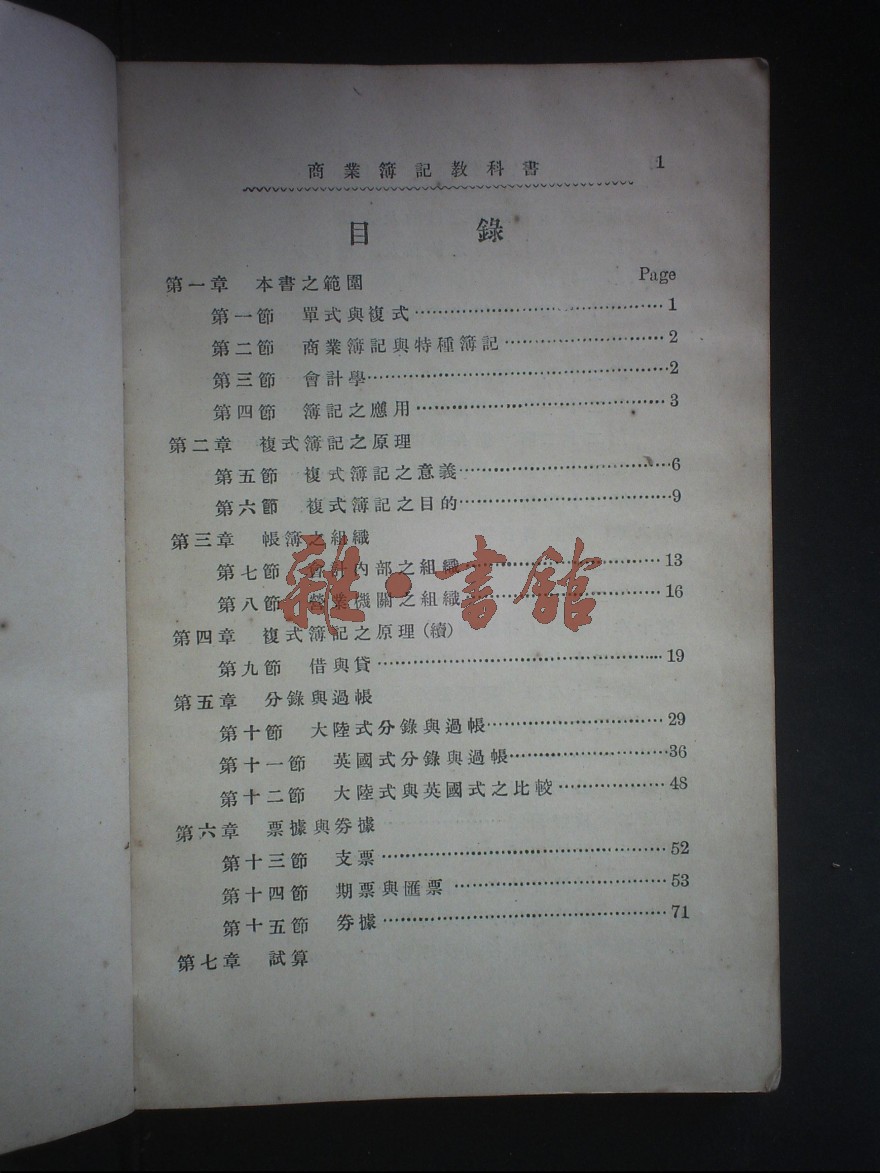 商業簿記教科書 1
目錄
Page
第一章 本書之範圍
第一節 單式與複式 1
第二節 商業簿記與特種簿記 2
第三節 會計學 2
第四節 簿記之應用 3
第二章 複式簿記之原理
第五節 複式簿記之意義 6
第六節 複式簿記之目的 9
第三章 帳簿之組織
第七節 會計內部之組織 13
第八節 營業機關之組織 16
雜·書館
第四章 複式簿記之原理(續)
第九節 借與貸 19
第五章 分錄與過帳
第十節 大陸式分錄與過帳 29
第十一節 英國式分錄與過帳 36
第十二節 大陸式與英國式之比較 48
第六章 票據與券據
第十三節 支票 52
第十四節 期票與匯票 53
第十五節 券據 71
第七章 試算